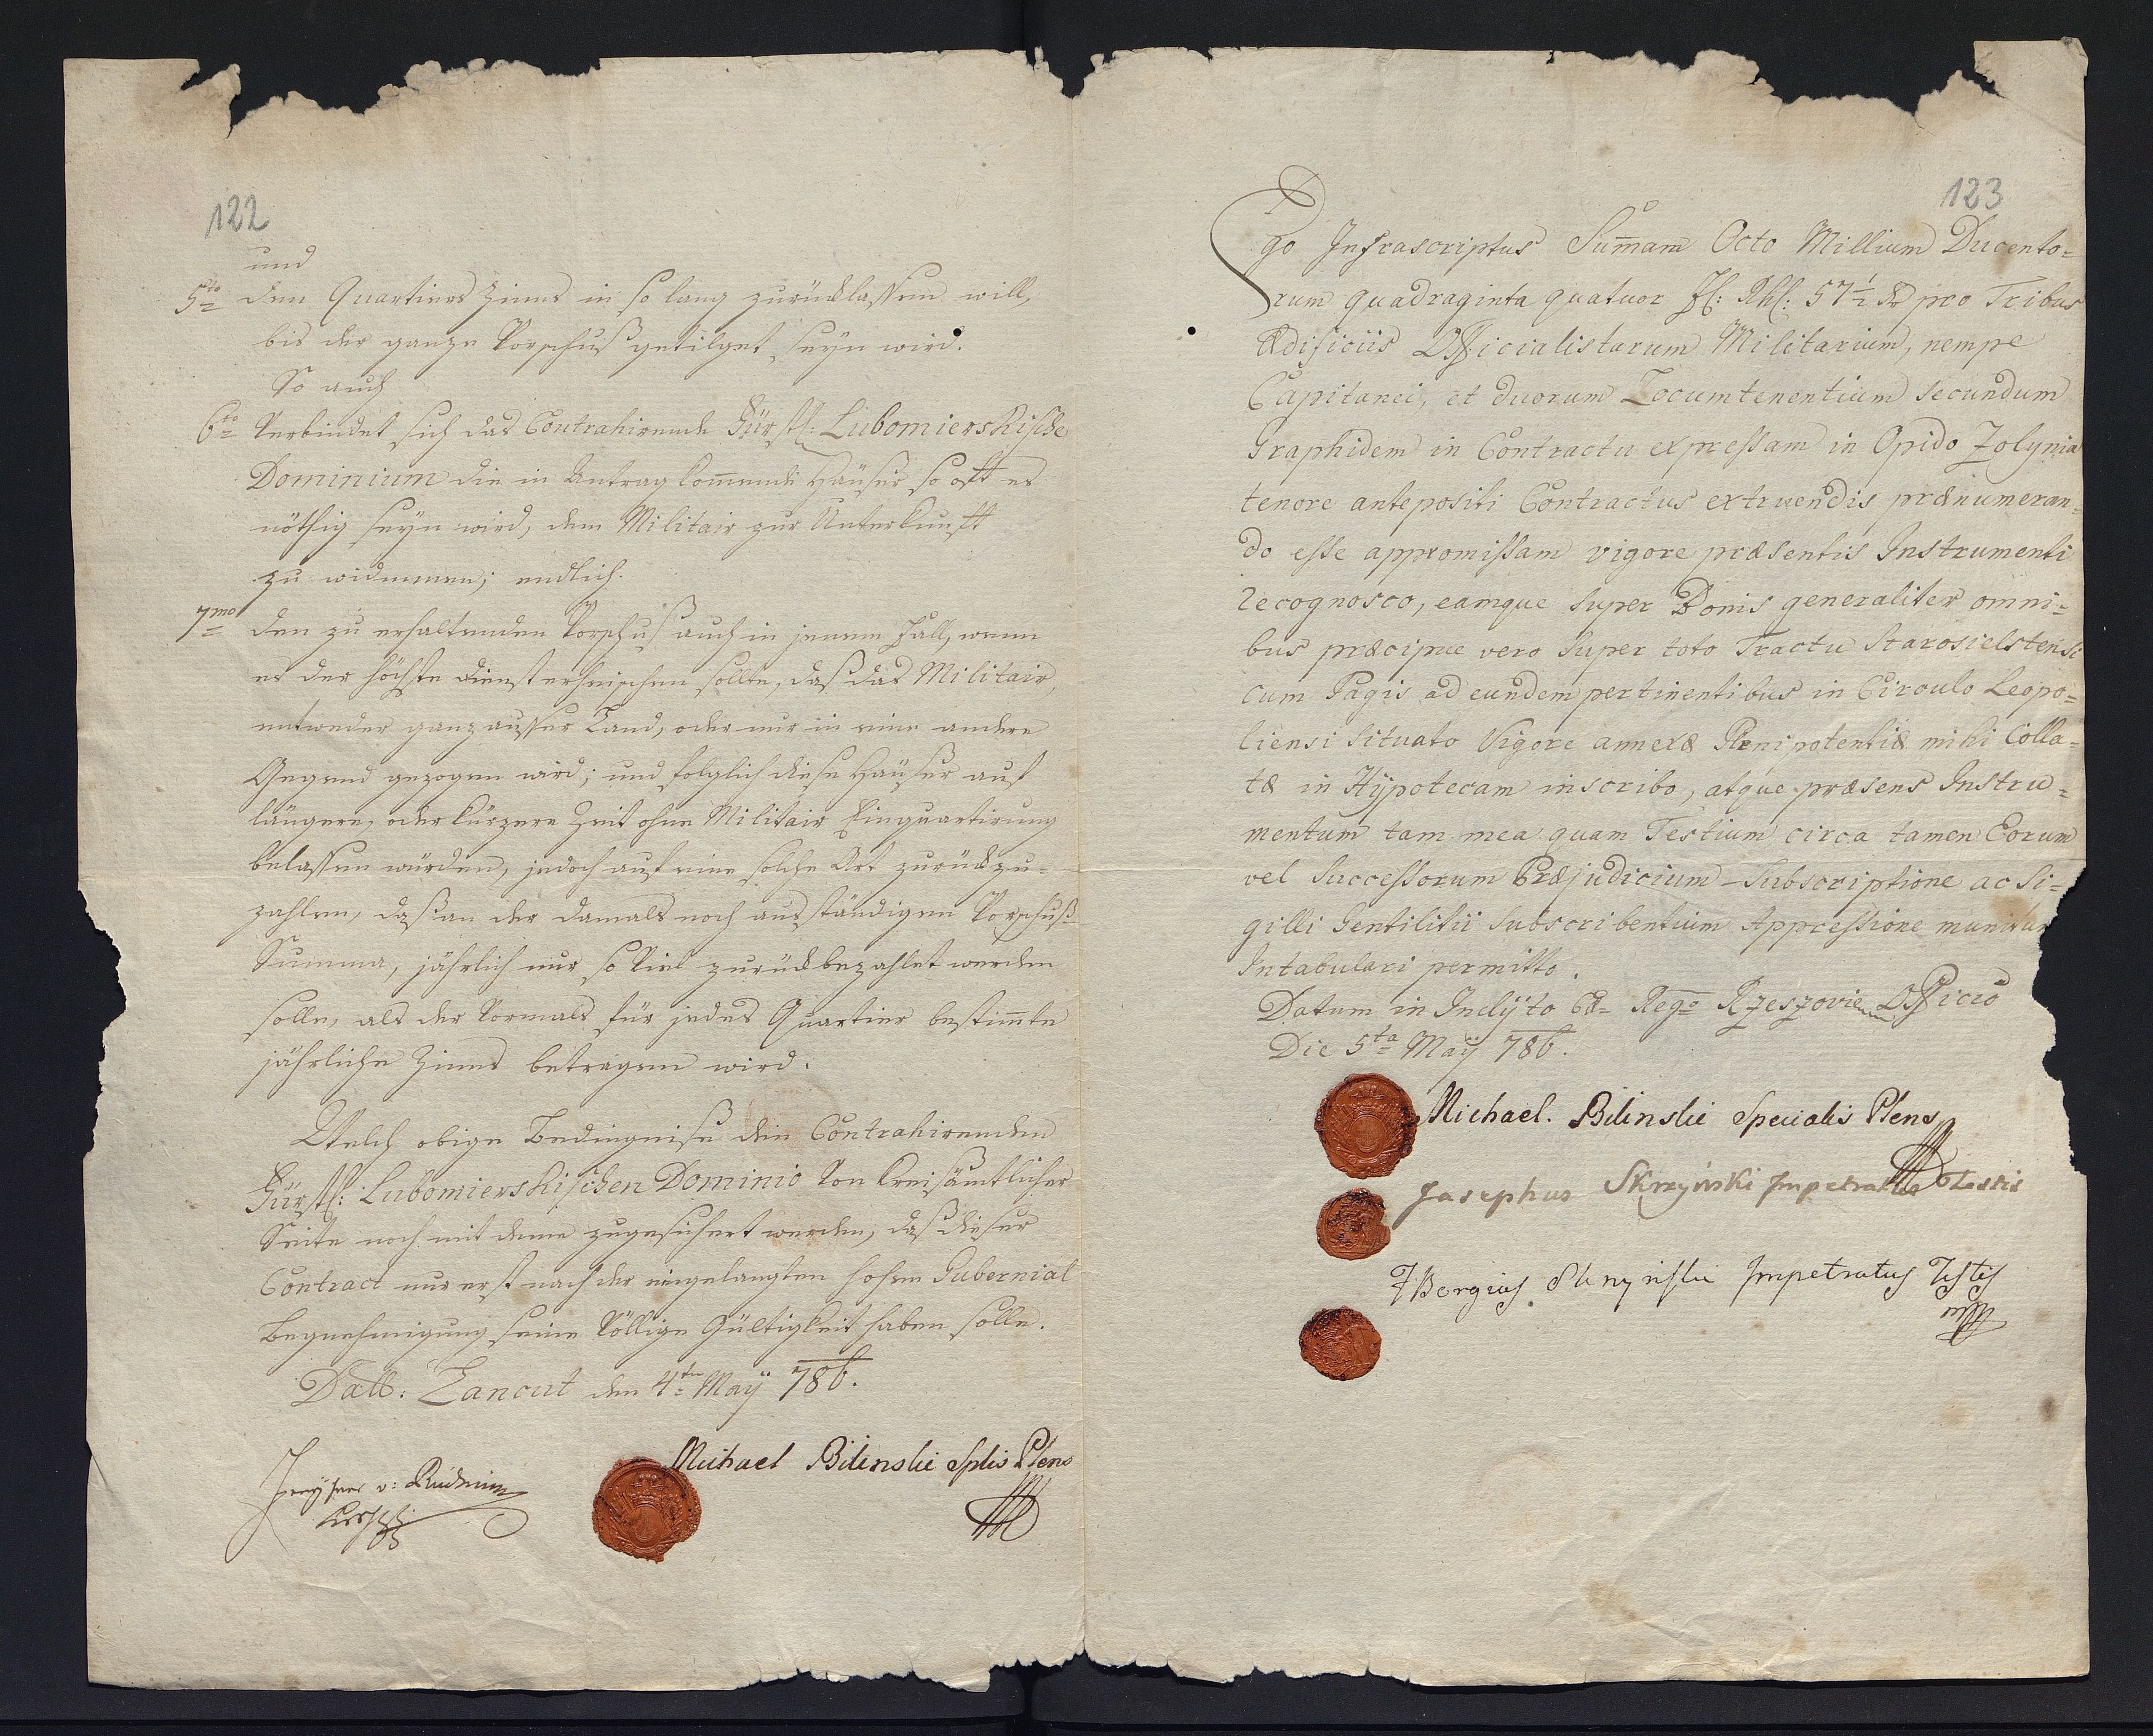 122
und
5to den Quartiers Zinns in so lang zurücklassen will,
bis der ganze Vorschuß getilget seyn wird.
So auch
6to Verbindet sich das Contrahirende Fürstl: Lubomierskische
Dominium die in Antrag kom̅ende Häuser so oft es
nöthig seyn wird, dem Militair zur Unterkunft
zu widmen; endlich.
7mo den zu erhaltenden Vorschuß auch in jenem Fall, wenn
es der höchste Dienst erheischen sollte, daß das Militair,
entweder ganz ausser Land, oder nur in eine andere
Gegend gezogen wird; und folglich diese Häuser auf
längere, oder kürzere Zeit ohne Militair Einquartirung
belassen würden, jedoch auf eine solche Art zurückzu=
zahlen, daß an der damals noch ausständigen Vorschuß=
Summa, jährlich nur so Viel zurückbezahlet werden
solle, als der Vormals für jedes Quartier bestim̅te
jährliche Zinns betragen wird.
Welch obige Bedingnisse dem Contrahirenden
Fürstl: Lubomierskischen Dominio Von Kreisämtlicher
Seite noch mit deme zugesichert werden, daß dieser
Contract nur erst nach der eingelangten hohen Gubernial
Begnehmigung seine Völlige Gültigkeit haben solle.
Datt: Lancut den 4ten Maÿ 786.
Michael Bilinski Splis Plens
123
Ego Infrascriptus Sum̅am Octo Millium Ducento=
rum quadraginta quatuor fl: Rhl: 57 1/2 Xr pro Tribus
Ædificiis Officialistarum Militarium, nempe
Capitanei, et duorum Locumtenentium secundum
Graphidem in Contractu expressam in Opido Zolynia
tenore antepositi Contractus extruendis prænumeran=
do esse appromissam vigore præsentis Instrumenti
recognosco, eamque super Bonis generaliter omni=
bus præcipue vero super toto Tractu Starosielstensi
cum Pagis ad eundem pertinentibus in Circulo Leopo=
liensi situato Vigore annexæ Plenipotentiæ mihi Colla=
tæ in Hÿpotecam inscribo, atque præsens Instru=
mentum tam mea quam Testium circa tamen Eorum
vel Successorum Præjudicium Subscriptione ac Si=
gilli Gentilitii Subscribentium Appressione munitum
Intabulari permitto.
Datum in Inclÿto Cæ= Rego Rzeszovien Officio
Die 5ta Maÿ 786.
Michael. Bilinski Specialis Plens
Josephus Skrzyński Impetratus Testis
Skrzyński Impetratus Testis
mp